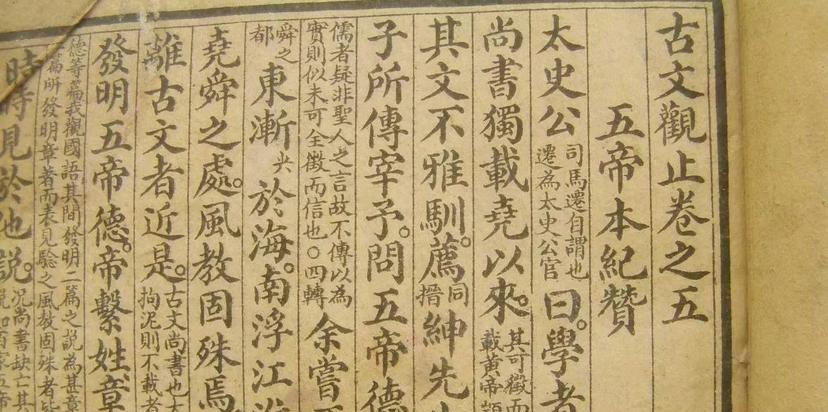 古文觀止卷之五
五帝本紀贊
太史公司馬遷自謂也遷為太史公官曰學者
尚書獨載堯以來其可徵而載黃帝
其文不雅馴薦同搢紳先
子所傳宰予問五帝德
儒者疑非聖人之言故不傳以為實則似未可全徵而信也〇四轉余嘗
舜之都東漸尖於海南浮江
堯舜之處風教固殊焉
離古文者近是古文尚書也拘泥則不載者
發明五帝德帝繫姓章
德等篇我觀國語其間發明二篇之說為甚章
篇所發明章著而表見驗之風教固殊者
時時見於他說況尚書缺亡其